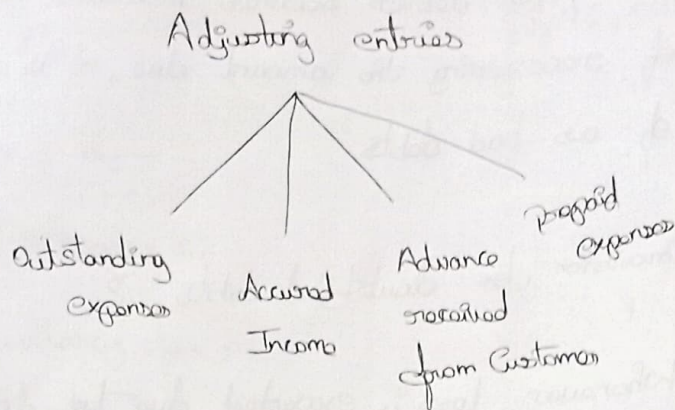 Adjusting entries
Outstanding
expenses
Accured
Income
Advance
received
from Customer
Prepaid
expenses